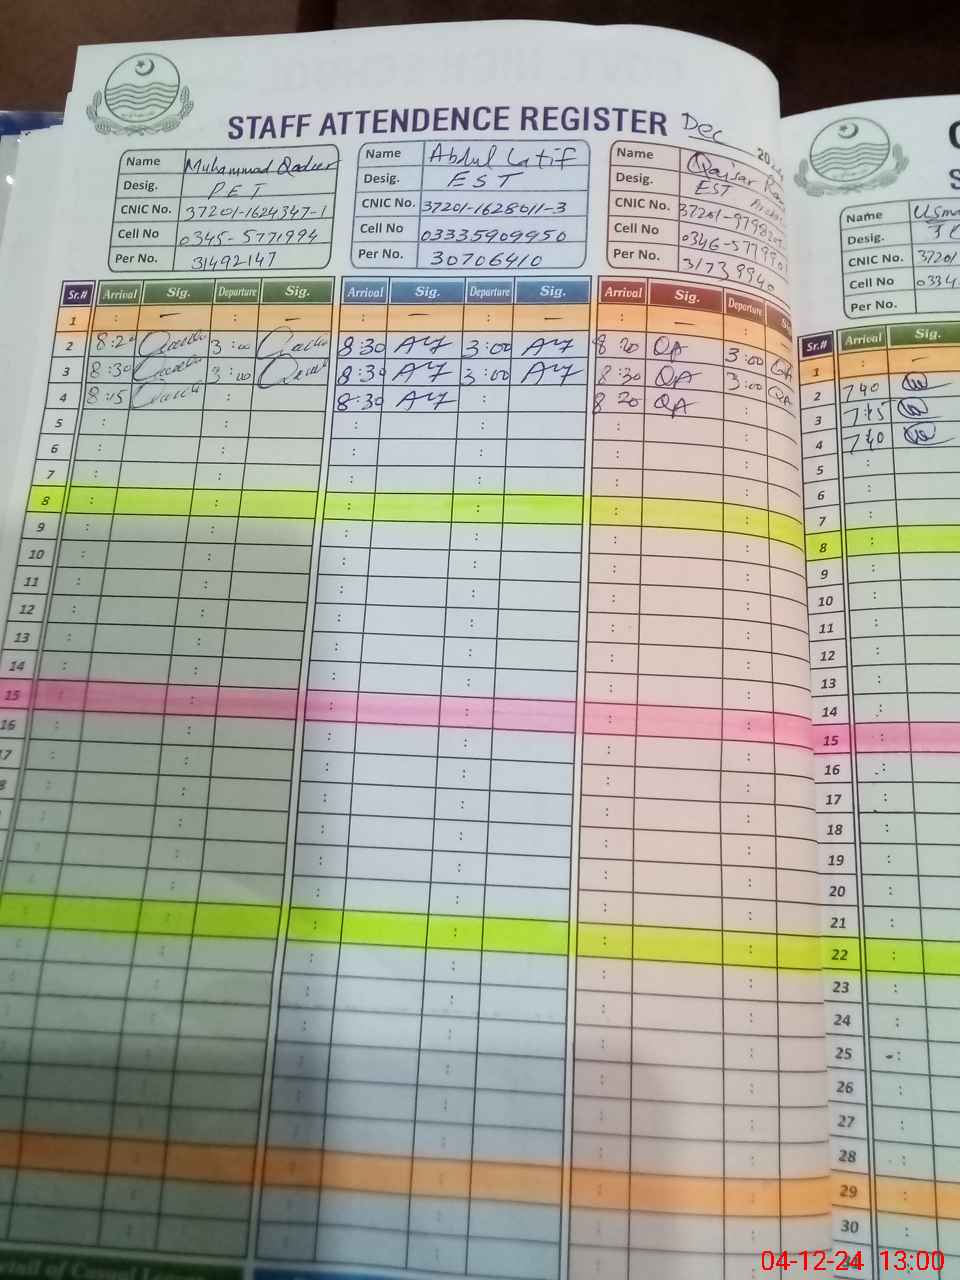 STAFF ATTENDENCE REGISTER Dec 20
Name Muhammad Qadeer
Desig. PET
CNIC No. 37201-1624347-1
Cell No 0345-5771994
Per No. 31492147
Name Abdul Latif
Desig. EST
CNIC No. 37201-1628011-3
Cell No 03335909950
Per No. 30706410
Name Qaisar
Desig. EST
CNIC No. 37201-
Cell No 0346-
Per No. 31739940
Sr.# Arrival Sig. Departure Sig. Arrival Sig. Departure Sig. Arrival Sig. Departure
1 : — : — : — : — : — :
2 8:20 3:00 8 30 3:00 8 20 QA 3:00 QA
3 8:30 3:00 8:30 3:00 8:30 QA 3:00 QA
4 8:15 : 8:30 : 8 20 QA
5
6
7
8
9
10
11
12
13
14
15
16
Name
Desig.
CNIC No. 37201
Cell No 0334
Per No.
Sr.# Arrival Sig.
1 : —
2 7 40
3 7:45
4 7:40
5
6
7
8
9
10
11
12
13
14
15
16
17
18
19
20
21
22
23
24
25
26
27
28
29
30
04-12-24 13:00